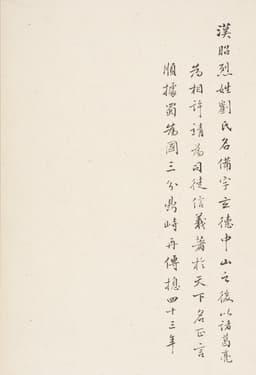 漢昭烈姓劉氏名備字玄德中山之後以諸葛亮
為相許靖為司徒信義著於天下名正言
順據蜀為國三分鼎峙再傳摠四十三年